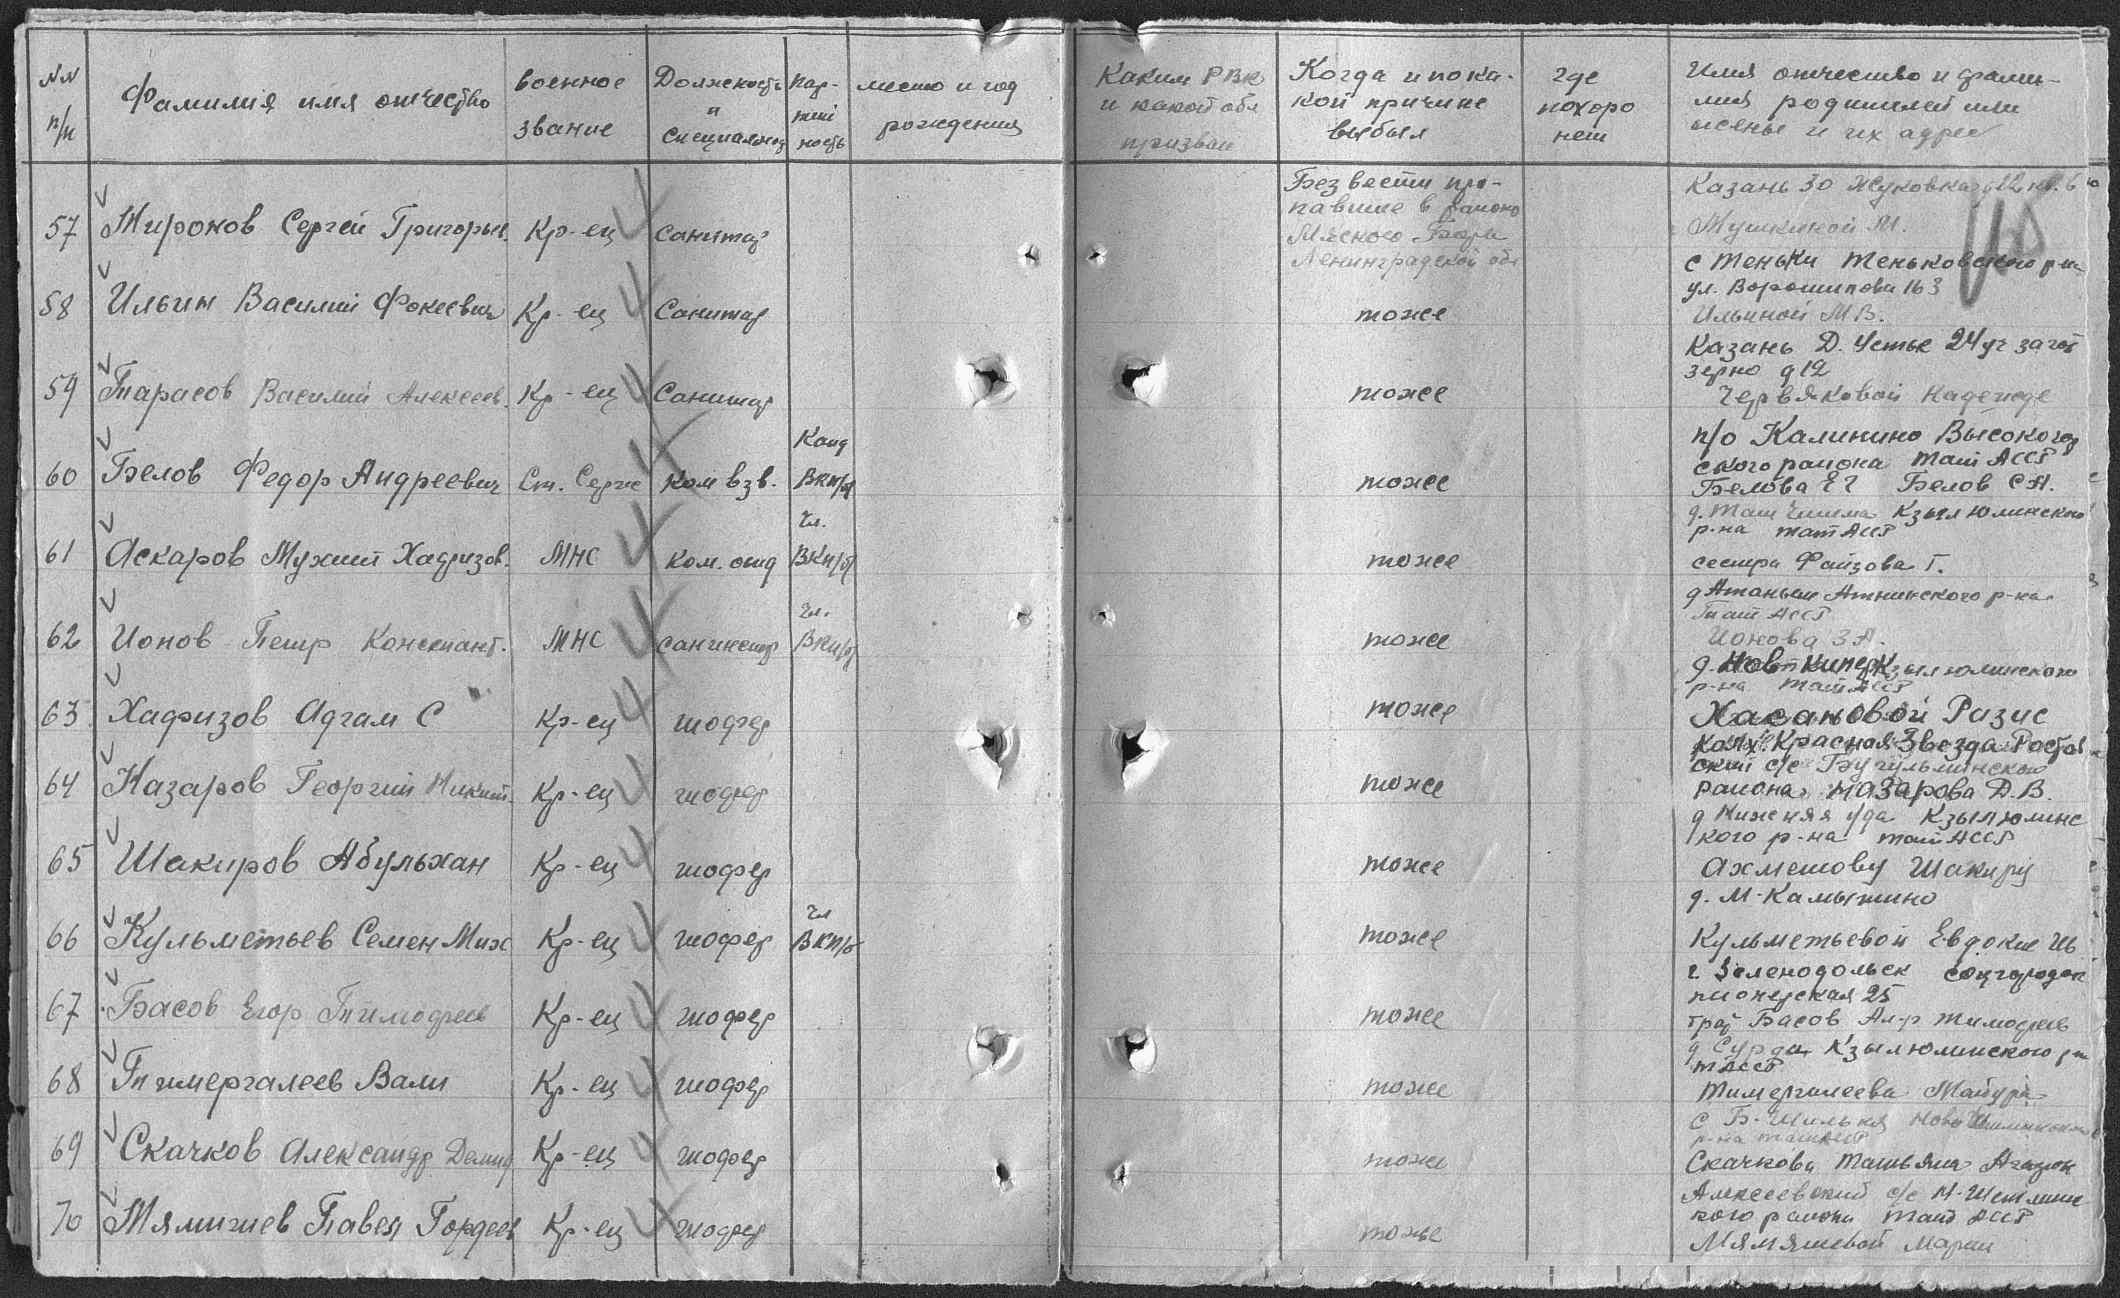 №№ п/п
Фамилия имя отчество
военное звание
Должность и специальность
пар-тий ность
место и год рождения
Каким РВК и какой обл призван
Когда и по ка-кой причине выбыл
где похоро нен
Имя отчество и фами-лия родителей или жены и их адрес
Казань 30 Жуковка д 12 кв. 6
57 Миронов Сергей Григорьев. Кр-ец Санитар Без вести про-павшие в районе Мясного Бора Ленинградской обл
Мушкиной М.
с Теньки Теньковского р-на
ул. Ворошилова 163
58 Ильин Василий Фокеевич Кр-ец Санитар тоже Ильиной М В.
Казань Д. Устье 24 уч загот
зерно д 12
59 Тарасов Василий Алексеев. Кр-ец Санитар тоже Червяковой Надежде
п/о Калинино Высокогор
ского района Тат АССР
60 Белов Федор Андреевич Ст. Серж Ком взв. Канд ВКП/б/ тоже Белова Белов С А.
д. Таш Кзыл Юлинского
р-на ТатАССР
61 Аскаров Мухит Хафизов. МНС Ком. отд Чл. ВКП/б/ тоже сестра Файзова Г.
Атнинского р-на
Тат АССР
62 Ионов Петр Констант. МНС санинстр Чл. ВКП/б/ тоже Ионова З А.
д. Кзыл Юлинского
р-на ТатАССР
63 Хафизов Адгам С Кр-ец шофер тоже Хасановой Разис
Колх. Красная Звезда
ский с/с Бугульминского
64 Назаров Георгий Никит. Кр-ец шофер тоже района Назарова Д. В.
д Нижняя Уда Кзыл Юлинс
кого р-на ТатАССР
65 Шакиров Абульхан Кр-ец шофер тоже Ахметову Шакиру
д. М-Камышино
66 Кульметьев Семен Мих Кр-ец шофер Чл ВКП/б тоже Кульметьевой Евдокие Ив
г. Зеленодольск соцгородок
пионерская 25
67 Басов Егор Тимофеев Кр-ец шофер тоже Басов Ал-р Тимофеев
д Сурда Кзыл Юлинского р-на
ТАССР
68 Тимергалеев Вали Кр-ец шофер тоже Тимергалеева
с Б-
р-на ТатАССР
69 Скачков Александр Демид Кр-ец шофер тоже Скачкова Татьяна
Алексеевский с/с
кого района Тат АССР
70 Мямишев Павел Гордеев Кр-ец шофер тоже Мямяшевой Марии